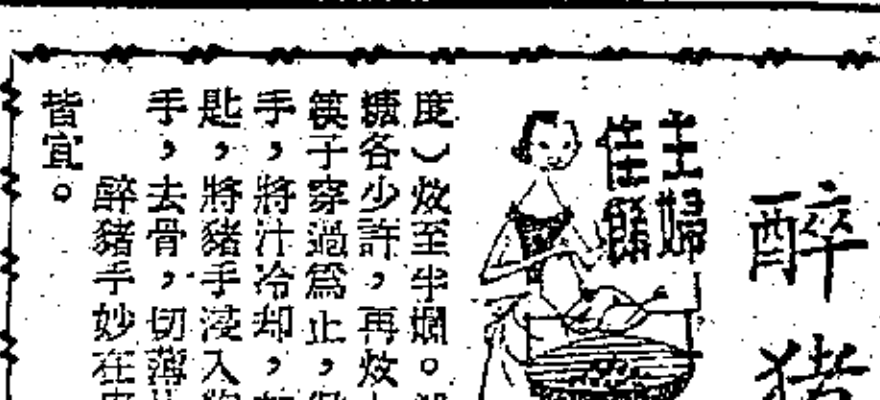 醉豬
主婦
佳餚
度）炆至半爛。
糖各少許，再炆
筷子穿過為止，
手，將汁冷却，
匙，將豬手浸入
手，去骨，切薄
醉豬手妙在
皆宜。